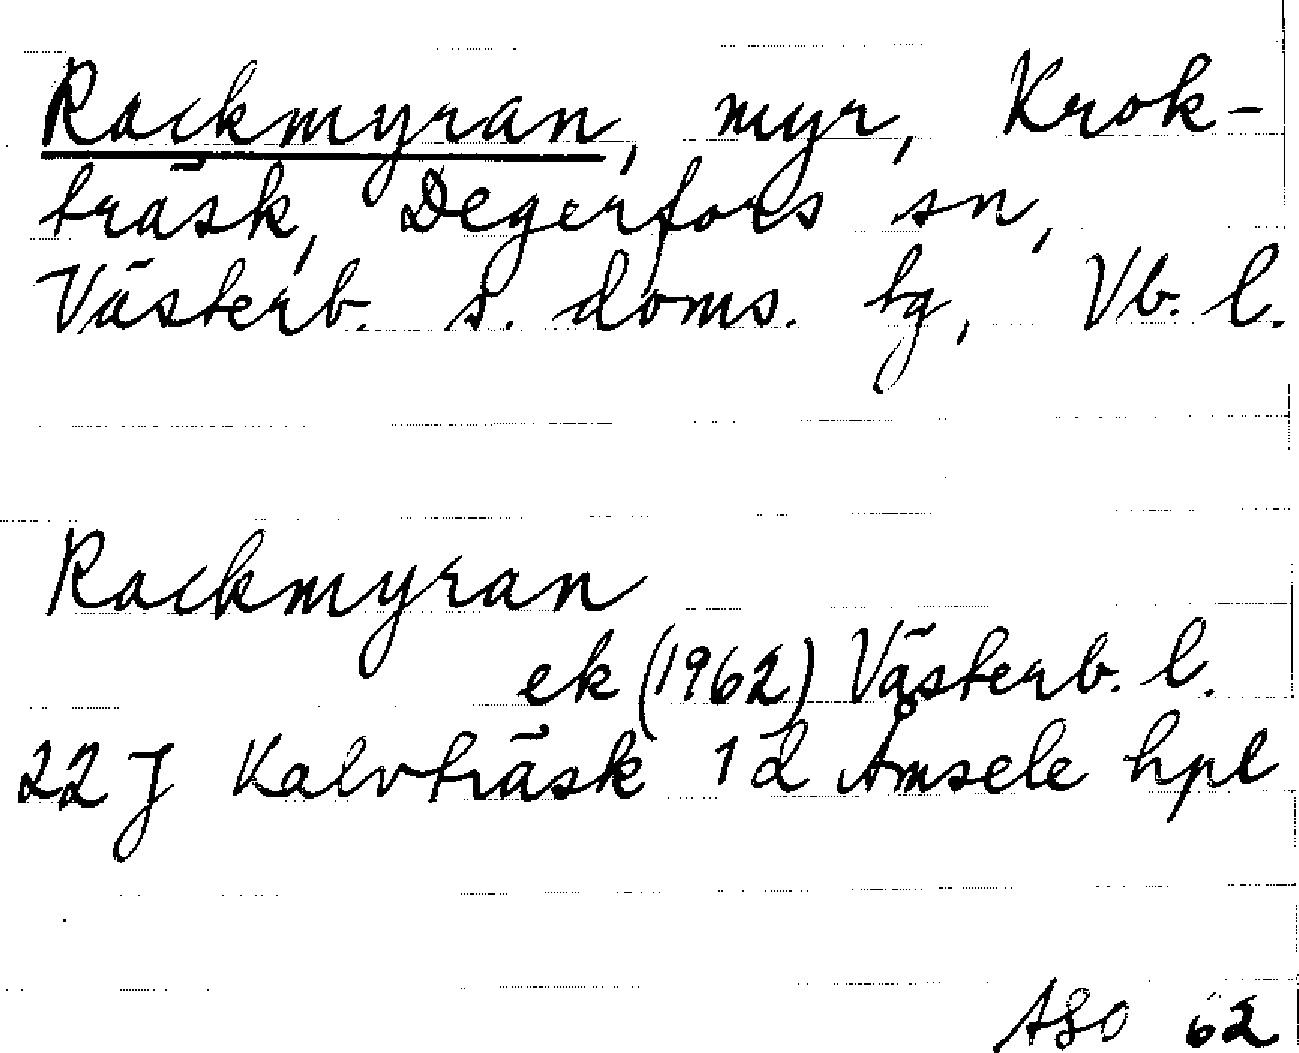 Rackmyran, myr, Krok-
träsk, Degerfors sn,
Västerb. s. doms. tg, Vb. l.
Rackmyran
ek (1962) Västerb. l.
22 J Kalvträsk 1 d Åmsele hpl
ASO 62